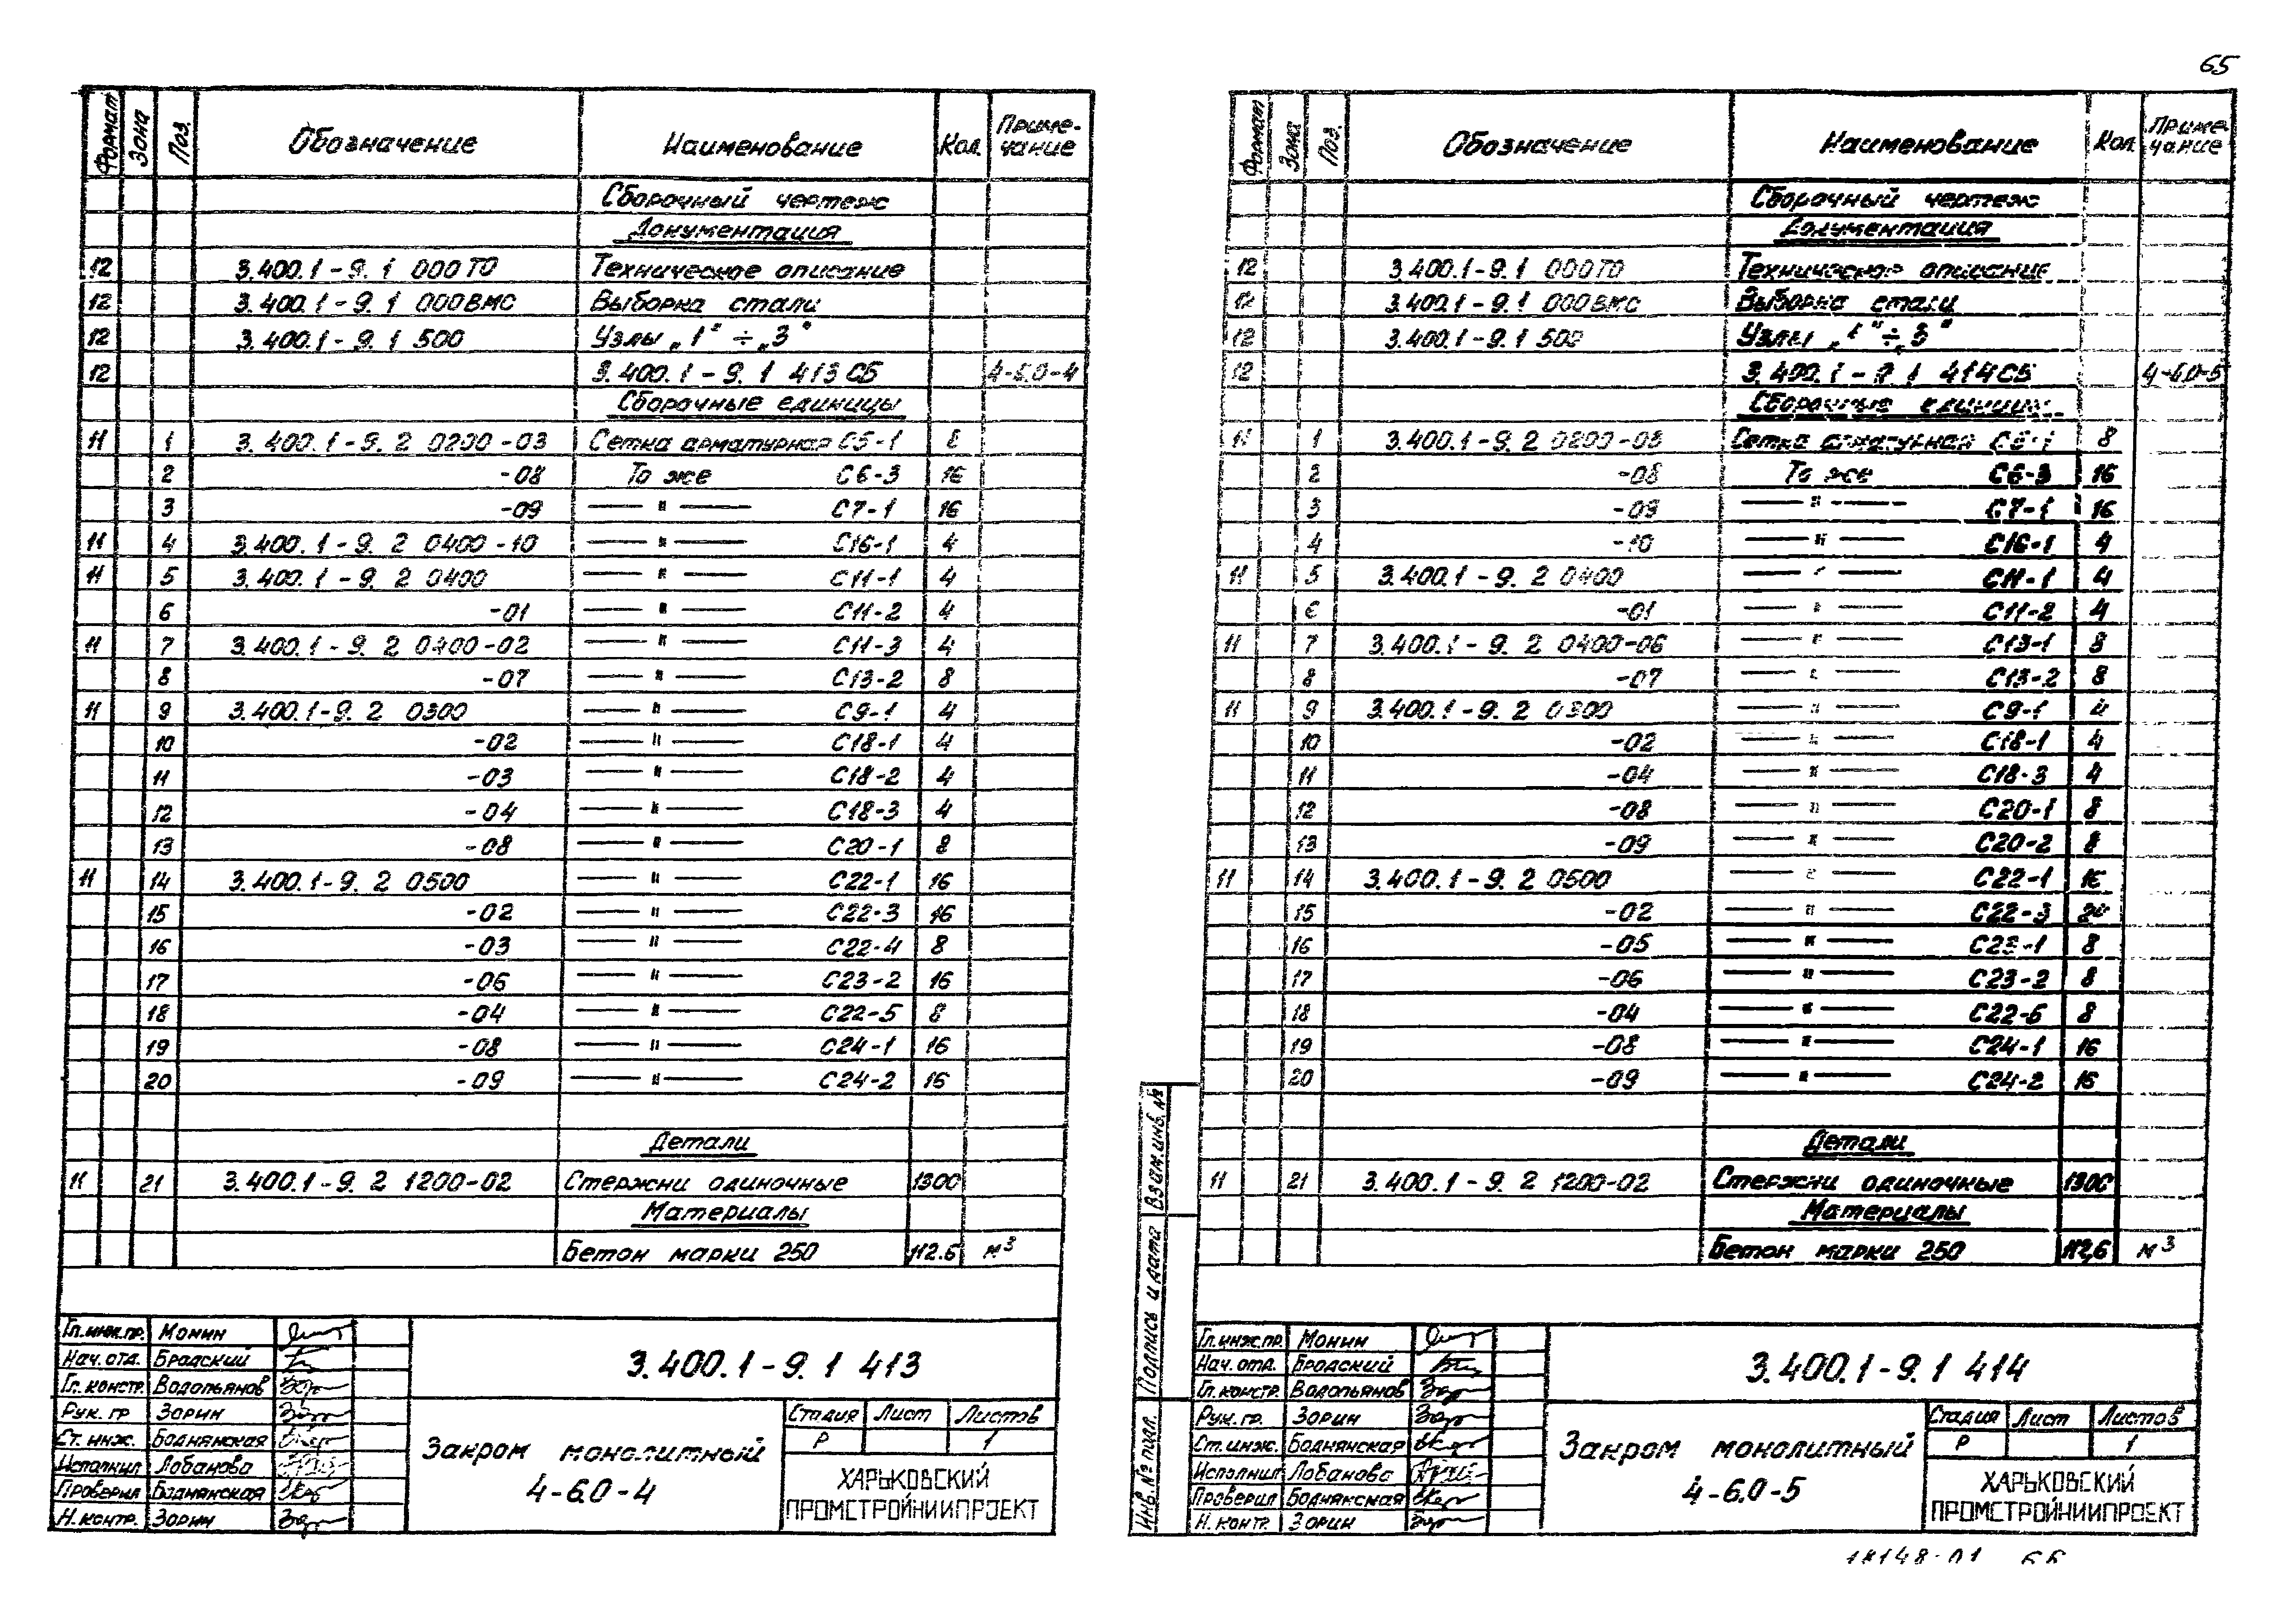 65
Формат Зона Поз. Обозначение Наименование Кол. Приме-чание
Сборочный чертеж
Документация
12 3.400.1-9.1 000ТО Техническое описание
12 3.400.1-9.1 000ВМС Выборка стали
12 3.400.1-9.1 500 Узлы „1" ÷ „3"
12 3.400.1-9.1 413СБ 4-6.0-4
Сборочные единицы
11 1 3.400.1-9.2 0200-03 Сетка арматурная С5-1 8
2 -08 То же С6-3 16
3 -09 — " — С7-1 16
11 4 3.400.1-9.2 0400-10 — " — С16-1 4
11 5 3.400.1-9.2 0400 — " — С11-1 4
6 -01 — " — С11-2 4
11 7 3.400.1-9.2 0400-02 — " — С11-3 4
8 -07 — " — С13-2 8
11 9 3.400.1-9.2 0300 — " — С9-1 4
10 -02 — " — С18-1 4
11 -03 — " — С18-2 4
12 -04 — " — С18-3 4
13 -08 — " — С20-1 8
11 14 3.400.1-9.2 0500 — " — С22-1 16
15 -02 — " — С22-3 16
16 -03 — " — С22-4 8
17 -06 — " — С23-2 16
18 -04 — " — С22-5 8
19 -08 — " — С24-1 16
20 -09 — " — С24-2 16
Детали
11 21 3.400.1-9.2 1200-02 Стержни одиночные 1300
Материалы
Бетон марки 250 112.6 м³
Гл.инж.пр. Монин
Нач. отд. Бродский
Гл. констр. Водопьянов
Рук. гр Зорин
Ст. инж. Боднянская
Исполнил Лобанова
Проверил Боднянская
Н. контр. Зорин
3.400.1-9.1 413
Закром монолитный
4-6.0-4
Стадия Лист Листов
Р 1
ХАРЬКОВСКИЙ
ПРОМСТРОЙНИИПРОЕКТ
Формат Зона Поз. Обозначение Наименование Кол. Приме-чание
Сборочный чертеж
Документация
12 3.400.1-9.1 000ТО Техническое описание
12 3.400.1-9.1 000ВМС Выборка стали
12 3.400.1-9.1 500 Узлы „1" ÷ „3"
12 3.400.1-9.1 414СБ 4-6.0-5
Сборочные единицы
11 1 3.400.1-9.2 0200-08 Сетка арматурная 8
2 -08 То же С6-3 16
3 -09 — " — С7-1 16
4 -10 — " — С16-1 4
11 5 3.400.1-9.2 0400 — " — С11-1 4
6 -01 — " — С11-2 4
11 7 3.400.1-9.2 0400-06 — " — С13-1 8
8 -07 — " — С13-2 8
11 9 3.400.1-9.2 0300 — " — С9-1 4
10 -02 — " — С18-1 4
11 -04 — " — С18-3 4
12 -08 — " — С20-1 8
13 -09 — " — С20-2 8
11 14 3.400.1-9.2 0500 — " — С22-1 16
15 -02 — " — С22-3
16 -05 — " — С23-1 8
17 -06 — " — С23-2 8
18 -04 — " — 8
19 -08 — " — С24-1 16
20 -09 — " — С24-2 16
Детали
11 21 3.400.1-9.2 1200-02 Стержни одиночные 1300
Материалы
Бетон марки 250 112,6 м³
Инв. № подл. Подпись и дата Взам.инв.№
Гл.инж.пр. Монин
Нач. отд. Бродский
Гл. констр. Водопьянов
Рук. гр. Зорин
Ст. инж. Боднянская
Исполнил Лобанова
Проверил Боднянская
Н. контр. Зорин
3.400.1-9.1 414
Закром монолитный
4-6.0-5
Стадия Лист Листов
Р 1
ХАРЬКОВСКИЙ
ПРОМСТРОЙНИИПРОЕКТ
18148-01 66